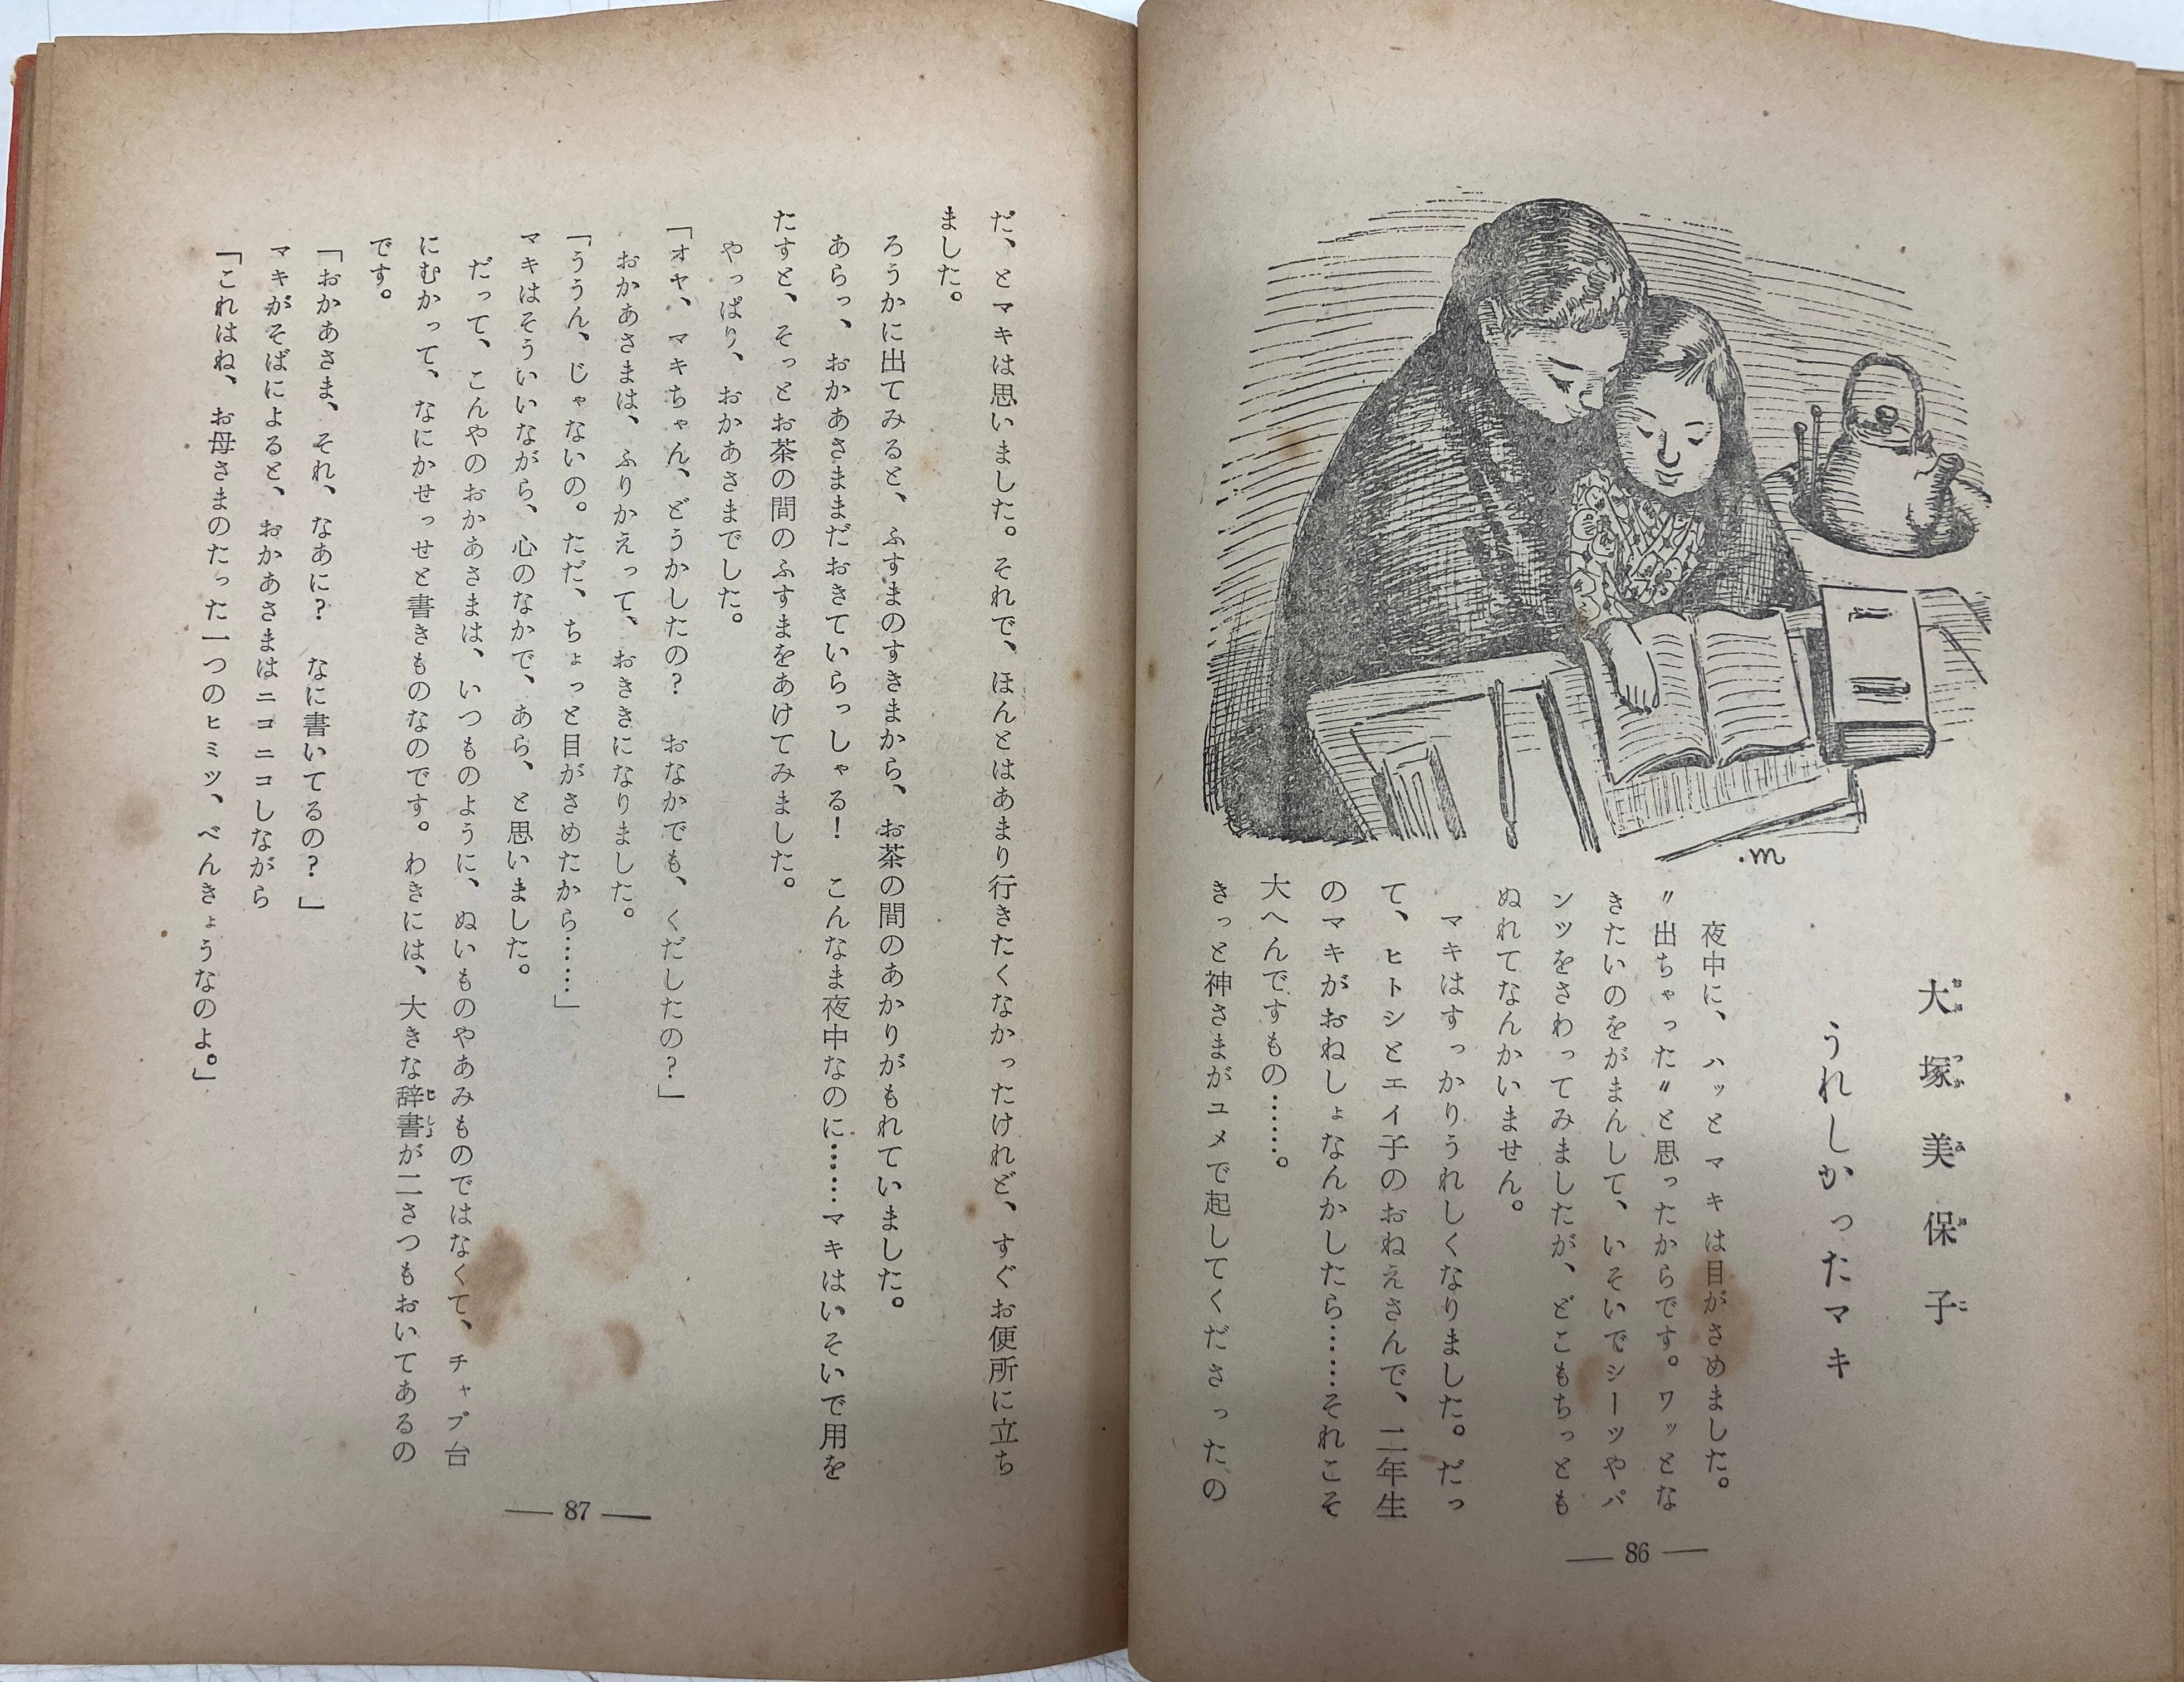 大塚美保子
うれしかったマキ
夜中に、ハッとマキは目がさめました。
〃出ちゃった〃と思ったからです。ワッとな
きたいのをがまんして、いそいでシーツやパ
ンツをさわってみましたが、どこもちっとも
ぬれてなんかいません。
マキはすっかりうれしくなりました。だっ
て、ヒトシとエイ子のおねえさんで、二年生
のマキがおねしょなんかしたら……それこそ
大へんですもの……。
きっと神さまがユメで起してくださったの
— 86 —
だ、とマキは思いました。それで、ほんとはあまり行きたくなかったけれど、すぐお便所に立ち
ました。
ろうかに出てみると、ふすまのすきまから、お茶の間のあかりがもれていました。
あらっ、おかあさままだおきていらっしゃる！　こんなま夜中なのに……マキはいそいで用を
たすと、そっとお茶の間のふすまをあけてみました。
やっぱり、おかあさまでした。
「オヤ、マキちゃん、どうかしたの？　おなかでも、くだしたの？」
おかあさまは、ふりかえって、おききになりました。
「ううん、じゃないの。ただ、ちょっと目がさめたから……」
マキはそういいながら、心のなかで、あら、と思いました。
だって、こんやのおかあさまは、いつものように、ぬいものやあみものではなくて、チャブ台
にむかって、なにかせっせと書きものなのです。わきには、大きな辞書が二さつもおいてあるの
です。
「おかあさま、それ、なあに？　なに書いてるの？」
マキがそばによると、おかあさまはニコニコしながら
「これはね、お母さまのたった一つのヒミツ、べんきょうなのよ。」
— 87 —